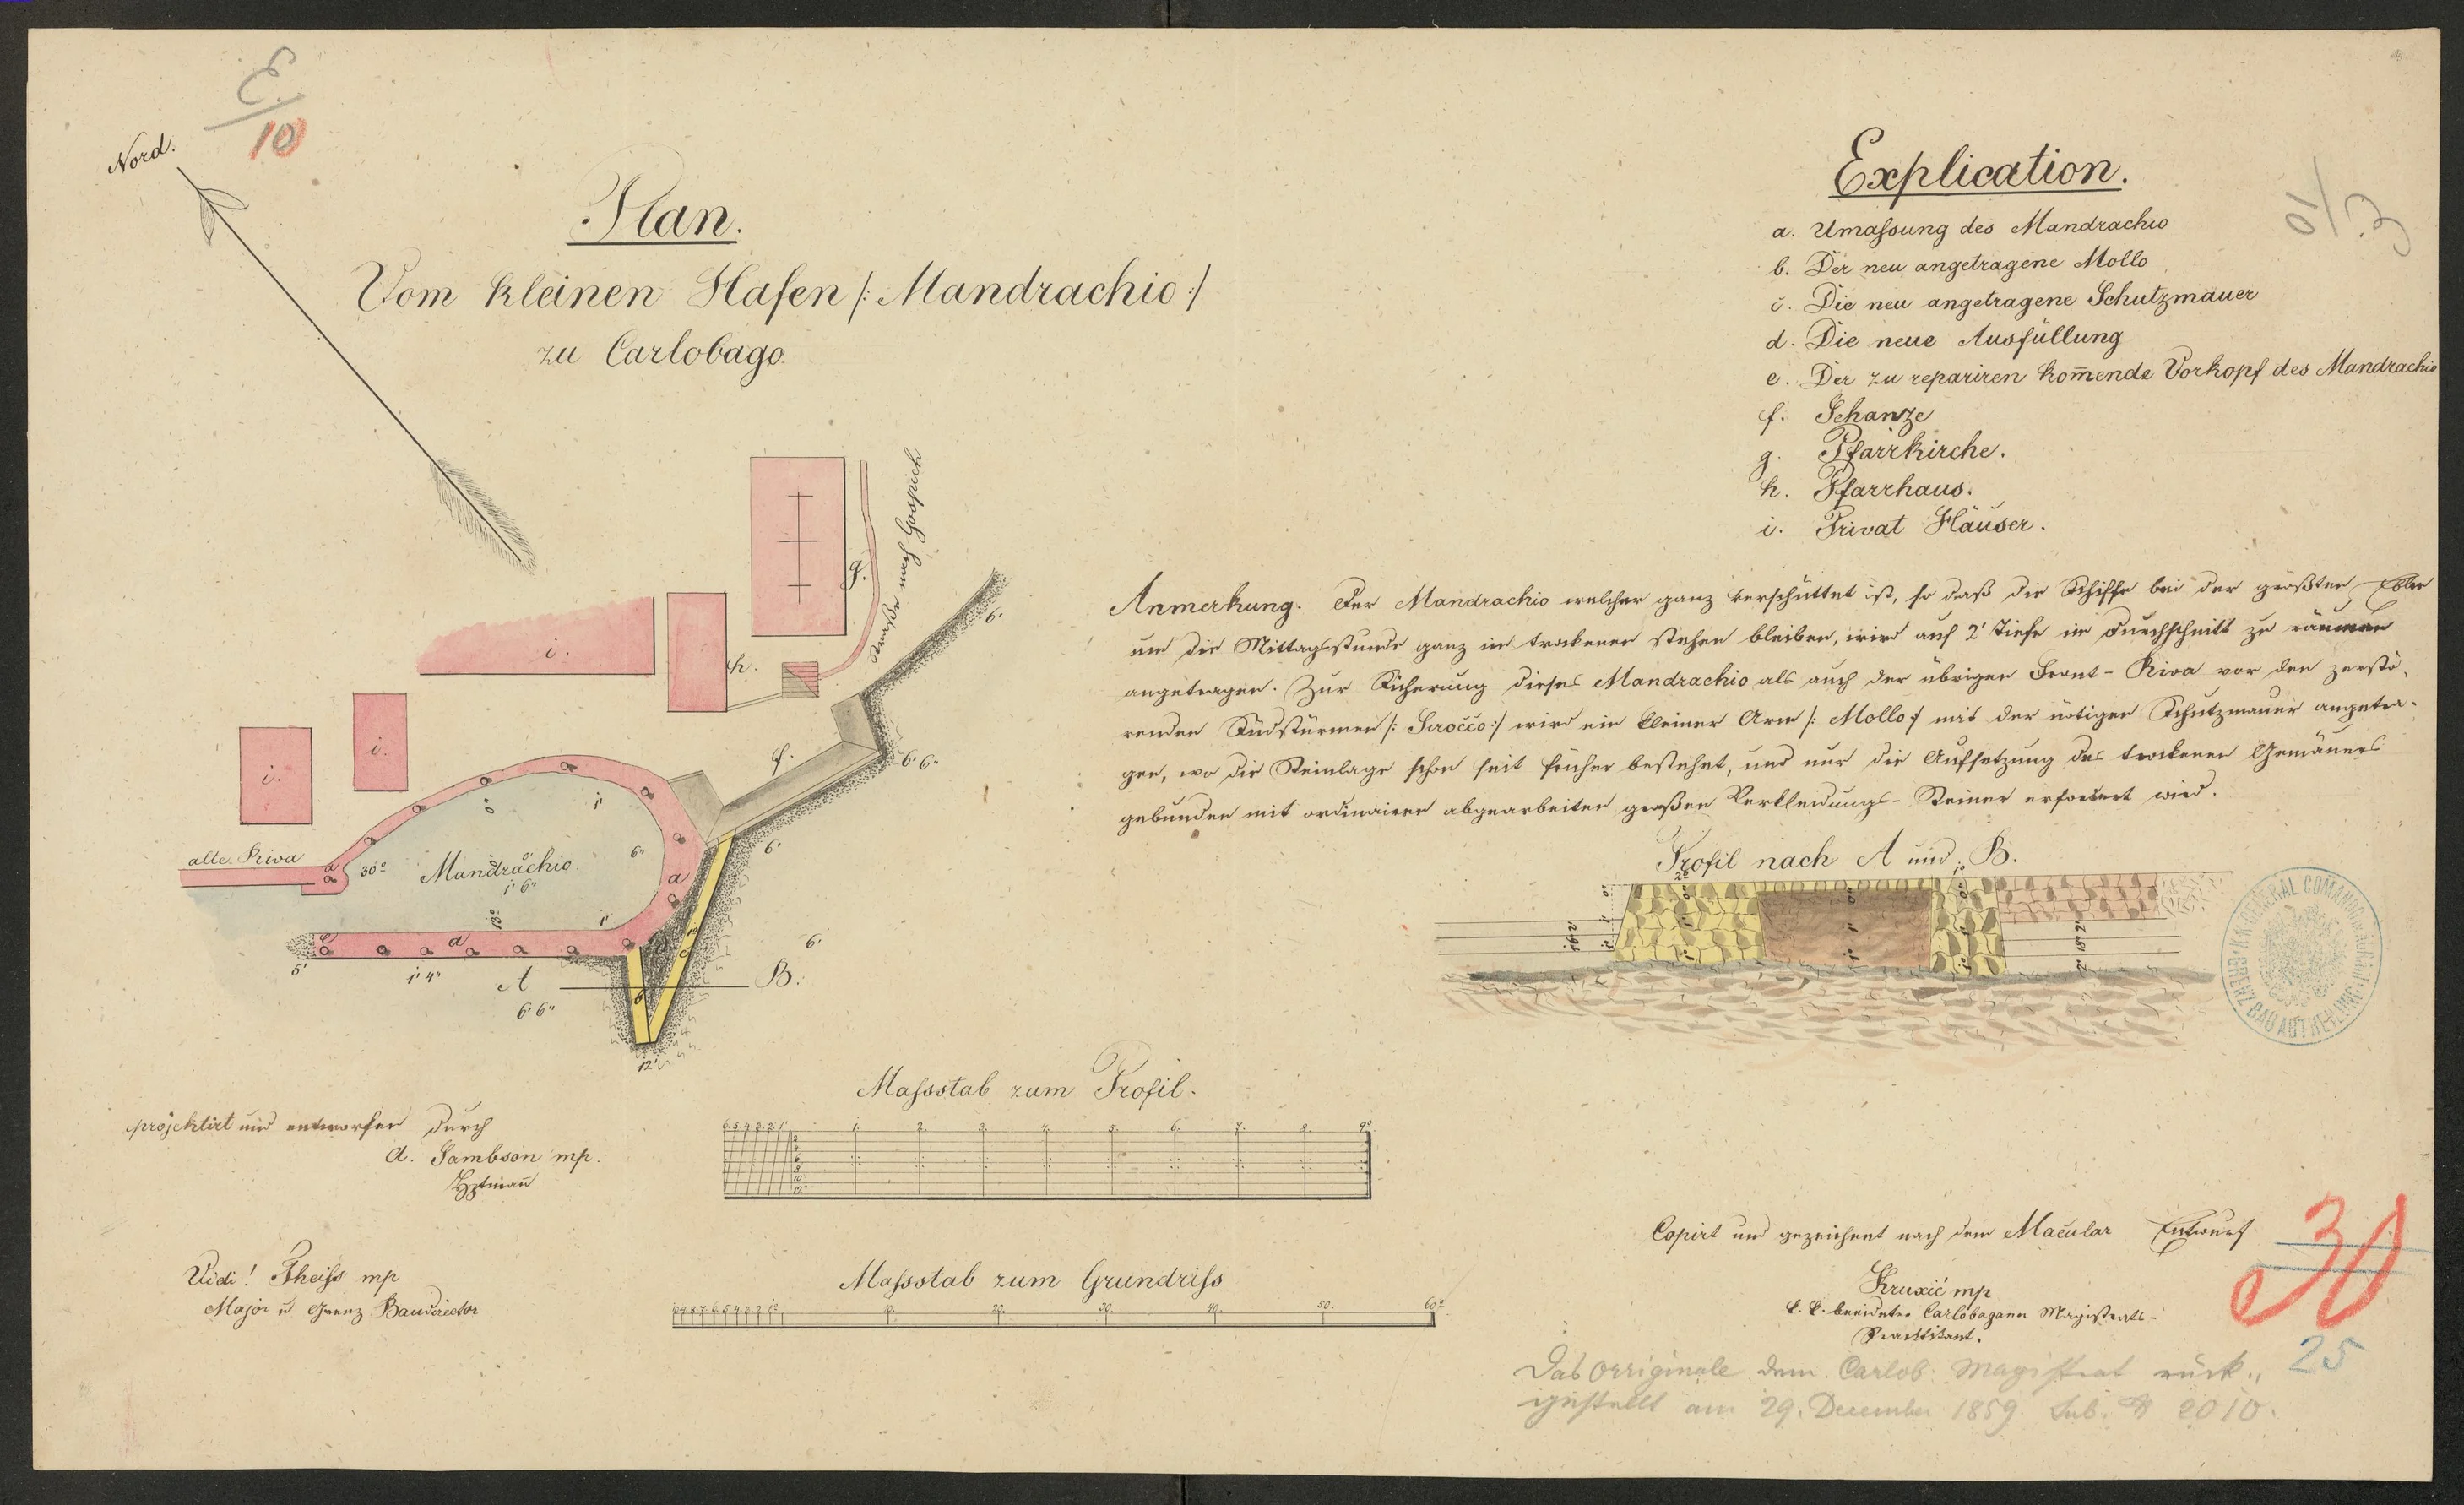 E./10
Nord.
Plan.
Vom kleinen Hafen /: Mandrachio :/
zu Carlobago.
Explication.
a. Umaſsung des Mandrachio
b. Der neu angetragene Mollo
c. Die neu angetragene Schutzmauer
d. Die neue Ausfüllung
e. Der zu repariren kom̄ende Vorkopf des Mandrachio
f. Schanze
g. Pfarrkirche.
h. Pfarrhaus.
i. Privat Häuser.
E./10
Straße nach Gospich
g.
h.
i.
i.
i.
f.
6'
6' 6"
6'
alte Riva
30°
Mandrachio
1' 6"
6"
1'
a
13°
1'
a
5'
1' 4"
A
B.
6' 6"
6'
12'
Anmerkung. Der Mandrachio welcher ganz verschüttet ist, so daß die Schiffe bei der größten Ebbe
um die Mittagsstunde ganz im trockenen stehen bleiben, wird auf 2' Tiefe im Durchschnitt zu räumen
angetragen. Zur Sicherung dieses Mandrachio als auch der übrigen Front-Riva vor den zerstö-
renden Südstürmen /: Sirocco :/ wird ein kleiner Arm /: Mollo :/ mit der nötigen Schutzmauer angetra-
gen, wo die Steinlage schon seit früher bestehet, und nur die Aufsetzung des trockenen Gemäuers
gebunden mit ordinairen abgearbeiten großen Verkleidungs-Steinen erfordert wird.
Profil nach A und B.
Maſsstab zum Profil.
6. 5. 4. 3. 2. 1. 1. 2. 3. 4. 5. 6. 7. 8. 9°
projektirt und entworfen durch
A. Sambson mp.
Hptman̄
Maſsstab zum Grundriſs
10. 20. 30. 40. 50. 60°
Vidi! Theiſs mp
Major u Grenz Baudirector
Copirt und gezeichnet nach dem Macular Entwurf
Kruxić mp
k. k. beeideter Carlobaganer Magistrats-
Practikant.
30
25
Das Orriginale dem Carlob. Magistrat rück„
gestellt am 29. December 1859. sub. № 2010.